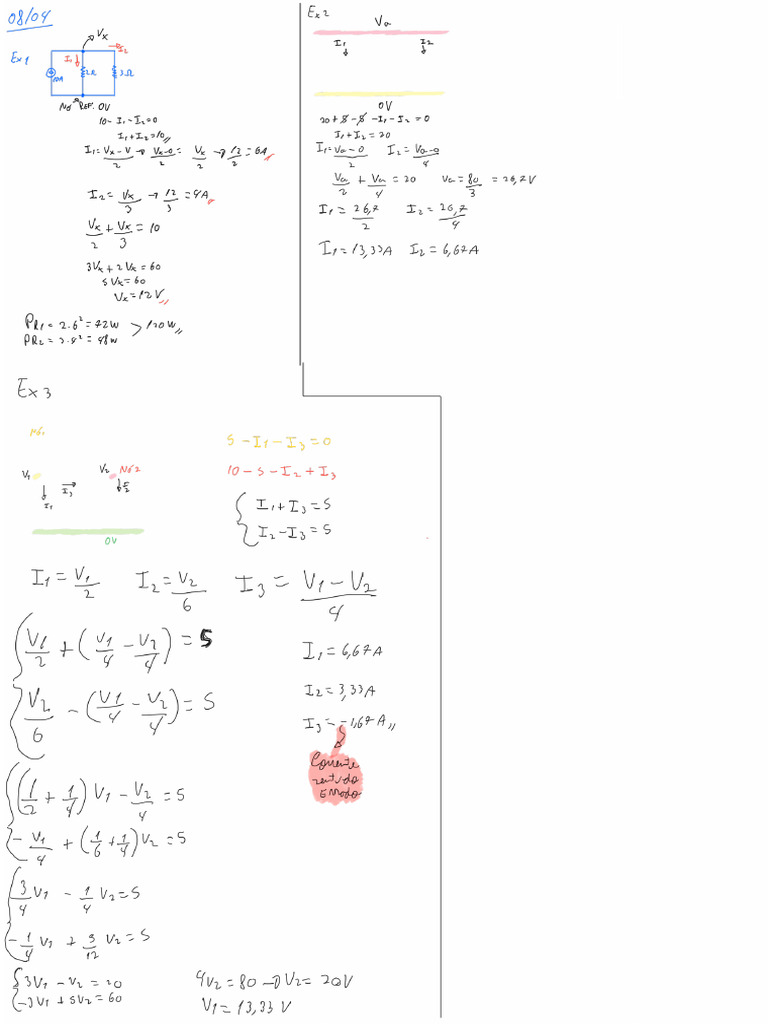 08/04
Ex1
Vx
I1
I2
10A
2Ω
3Ω
Nó REF. 0V
10-I1-I2=0
I1+I2=10//
I1=Vx-V/2 → Vx-0/2 = Vx/2 → 12/2 = 6A
I2=Vx/3 → 12/3 = 4A
Vx/2 + Vx/3 = 10
3Vx+2Vx=60
5Vx=60
Vx=12V//
PR1=2.6²=72W > 120W//
PR2=3.4²=48W
Ex2
Va
I1
I2
0V
20+5-5-I1-I2=0
I1+I2=20
I1=Va-0/2 I2=Va-0/4
Va/2 + Va/4 = 20 Va=80/3 = 26,7V
I1=26,7/2 I2=26,7/4
I1=13,33A I2=6,67A
Ex3
Nó1
V1
V2 Nó2
I1
I3
I2
0V
5-I1-I3=0
10-5-I2+I3
{ I1+I3=5
I2-I3=5
I1=V1/2 I2=V2/6 I3=V1-V2/4
{ V1/2+(V1/4-V2/4)=5
V2/6-(V1/4-V2/4)=5
I1=6,67A
I2=3,33A
I3=-1,67A//
Corrente
sentido
Errado
{ (1/2+1/4)V1-V2/4=5
-V1/4+(1/6+1/4)V2=5
{ 3/4V1-1/4V2=5
-1/4V1+5/12V2=5
{ 3V1-V2=20
-3V1+5V2=60
4V2=80→V2=20V
V1=13,33V